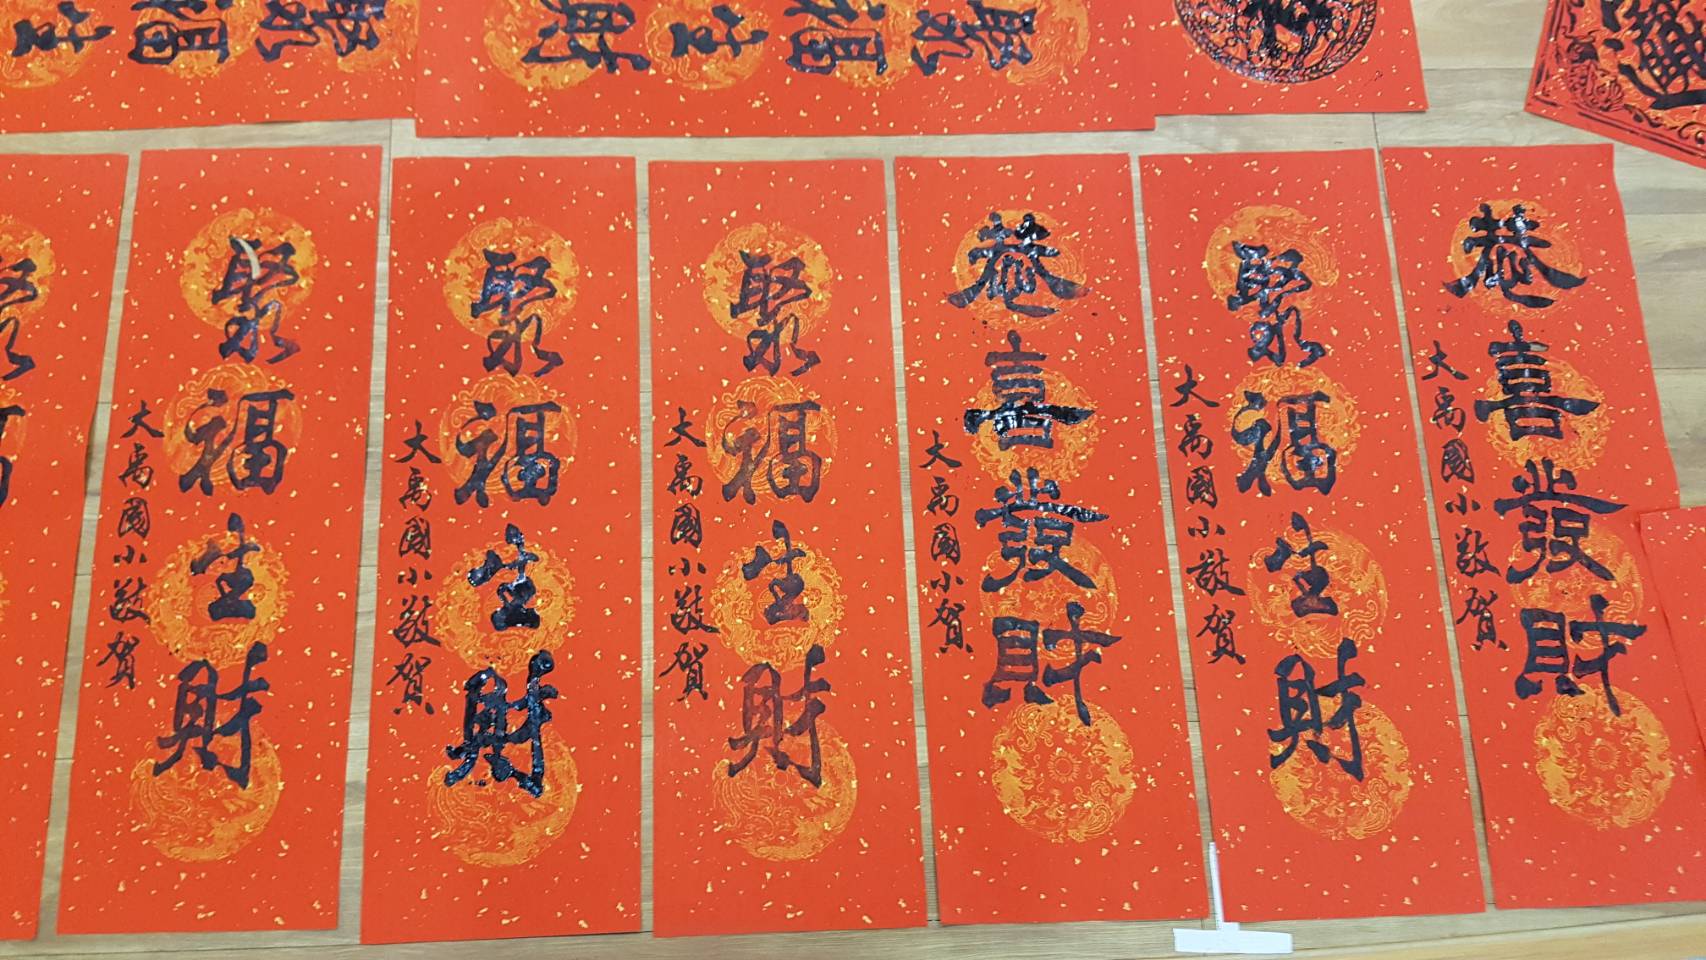 聚福生
聚福生財
聚福生財
大禹國小敬賀
聚福生財
大禹國小敬賀
聚福生財
大禹國小敬賀
恭喜發財
大禹國小賀
聚福生財
大禹國小敬賀
恭喜發財
大禹國小敬賀